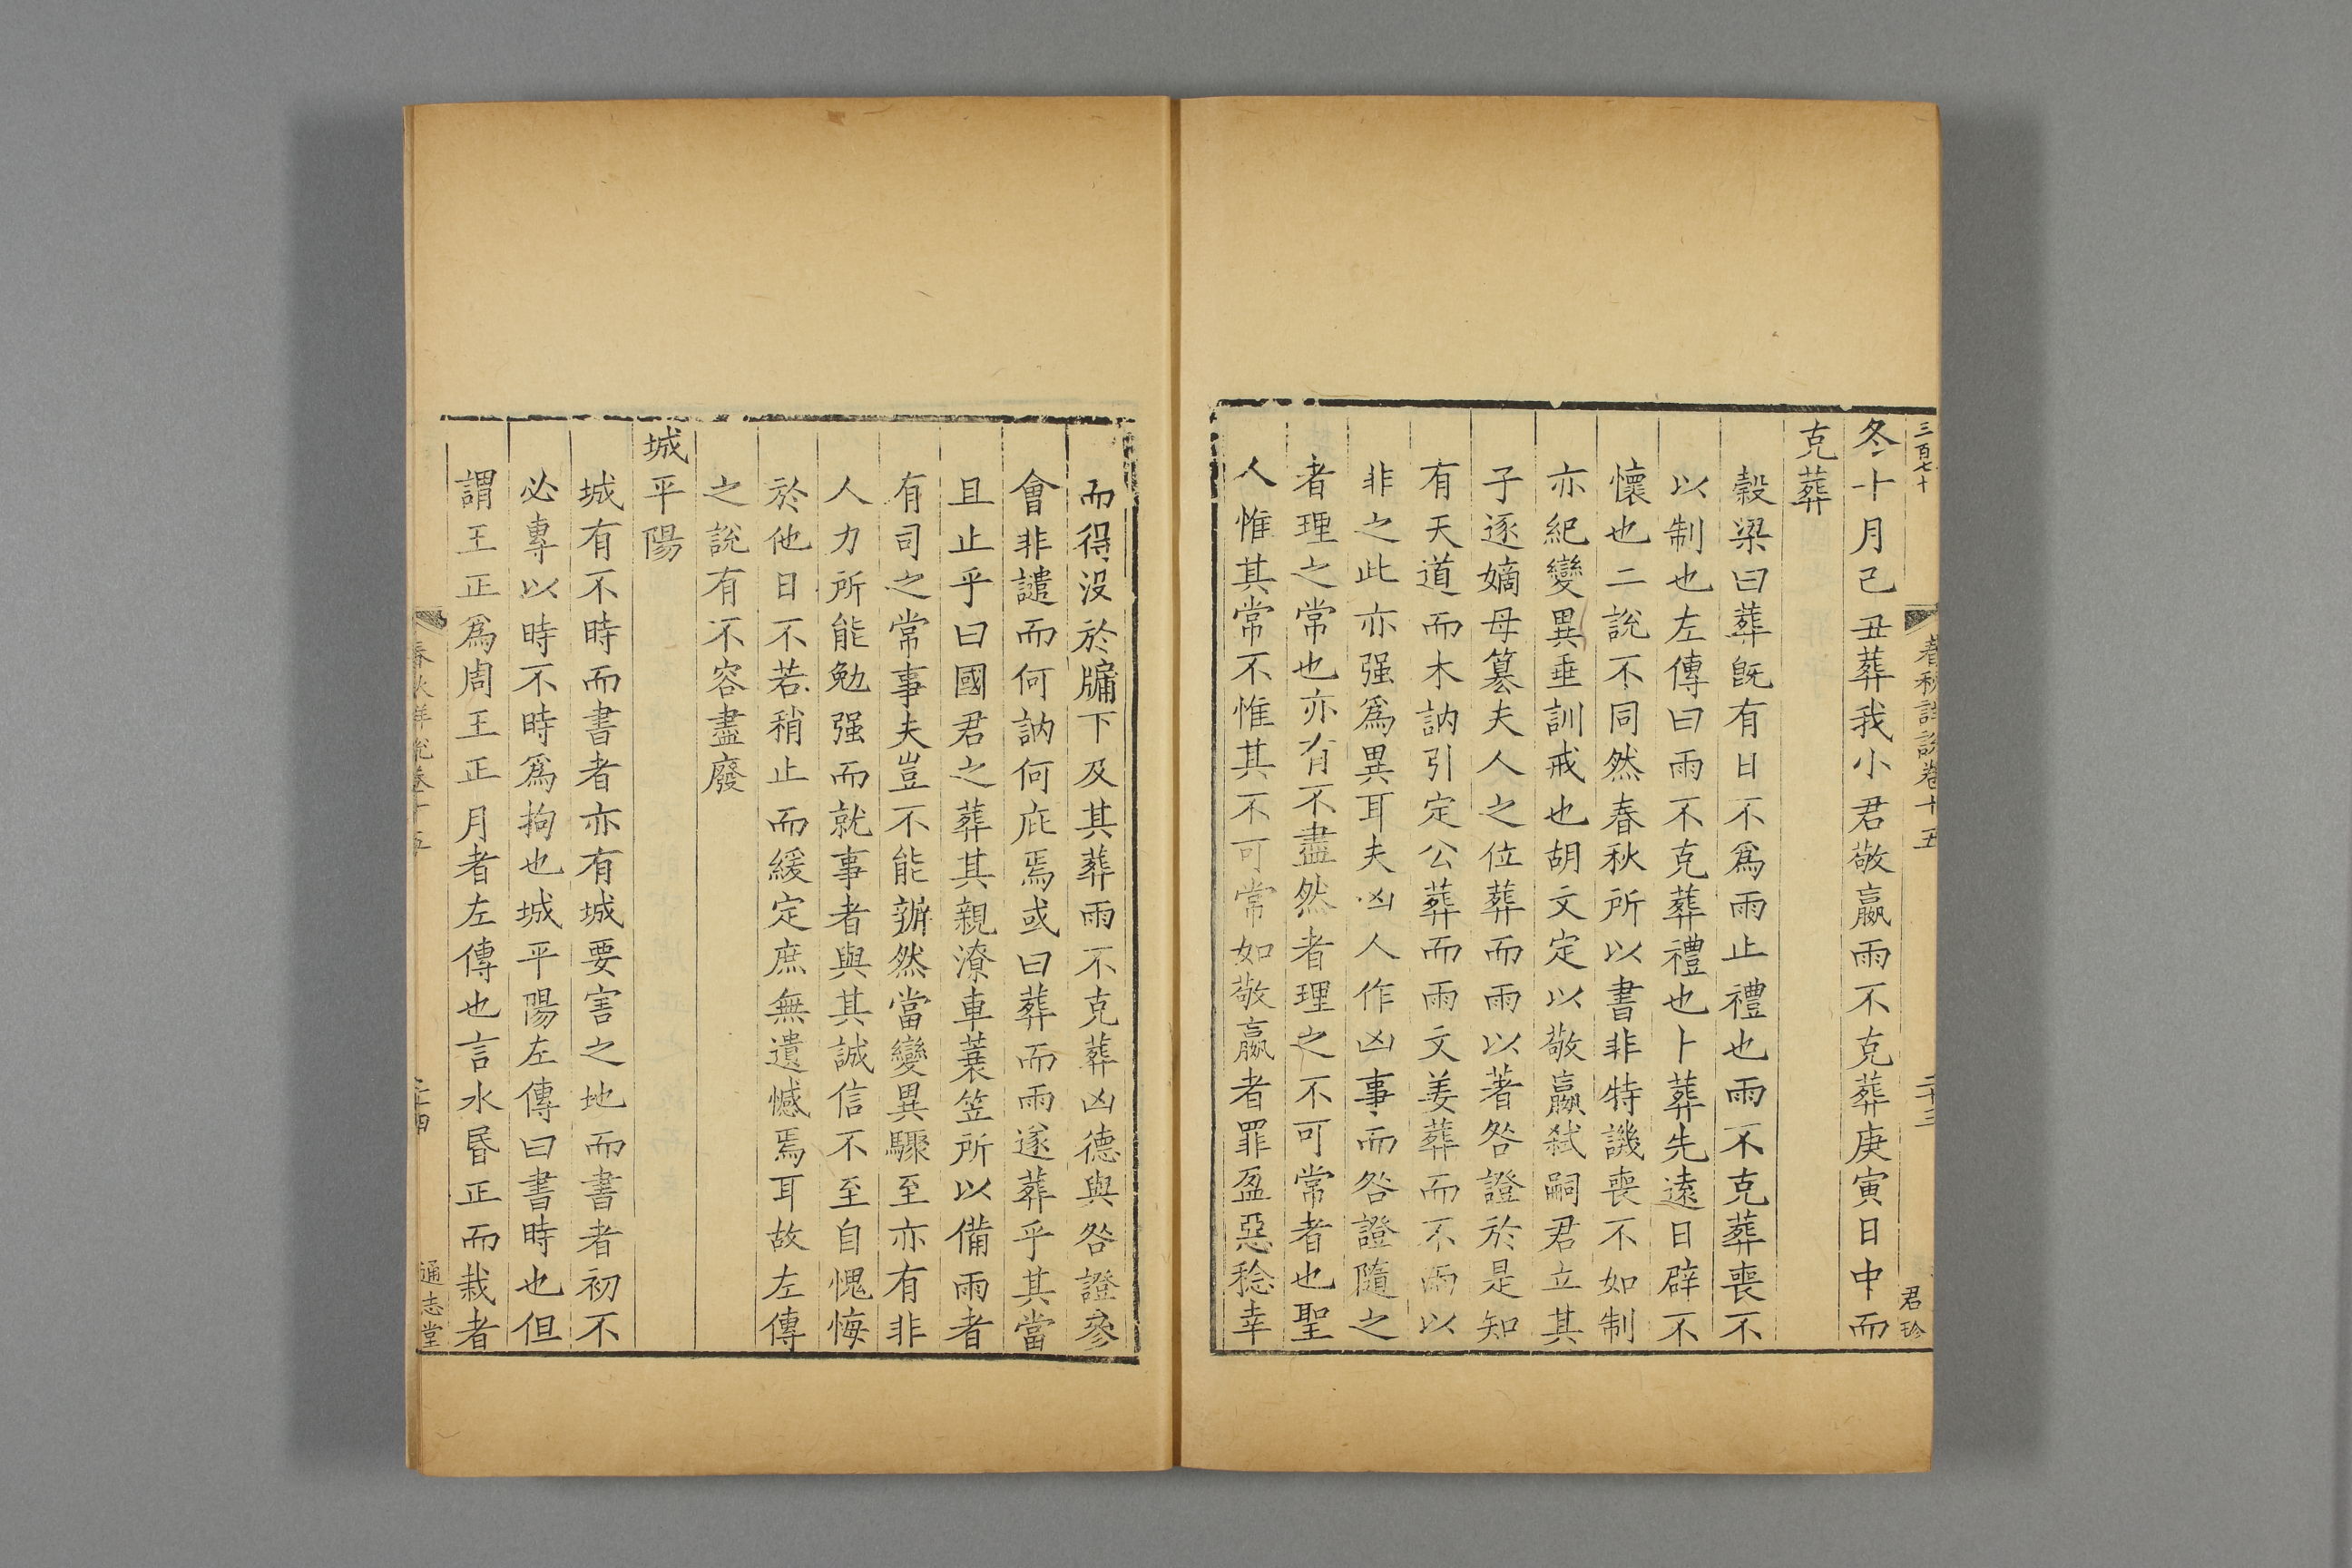 三百七十
春秋詳說卷十五
二十三
君珍
冬十月己丑葬我小君敬嬴雨不克葬庚寅日中而
克葬
穀梁曰葬旣有日不爲雨止禮也雨不克葬喪不
以制也左傳曰雨不克葬禮也卜葬先遠日辟不
懷也二說不同然春秋所以書非特譏喪不如制
亦紀變異垂訓戒也胡文定以敬嬴弑嗣君立其
子逐嫡母簒夫人之位葬而雨以著咎證於是知
有天道而木訥引定公葬而雨文姜葬而不雨以
非之此亦强爲異耳夫凶人作凶事而咎證隨之
者理之常也亦有不盡然者理之不可常者也聖
人惟其常不惟其不可常如敬嬴者罪盈惡稔幸
而得沒於牖下及其葬雨不克葬凶德與咎證參
會非譴而何訥何庇焉或曰葬而雨遂葬乎其當
且止乎曰國君之葬其親潦車蓑笠所以備雨者
有司之常事夫豈不能辦然當變異驟至亦有非
人力所能勉强而就事者與其誠信不至自愧悔
於他日不若稍止而緩定庶無遺憾焉耳故左傳
之說有不容盡廢
城平陽
城有不時而書者亦有城要害之地而書者初不
必專以時不時爲拘也城平陽左傳曰書時也但
謂王正爲周王正月者左傳也言水昏正而栽者
春秋詳說卷十五
二十四
通志堂